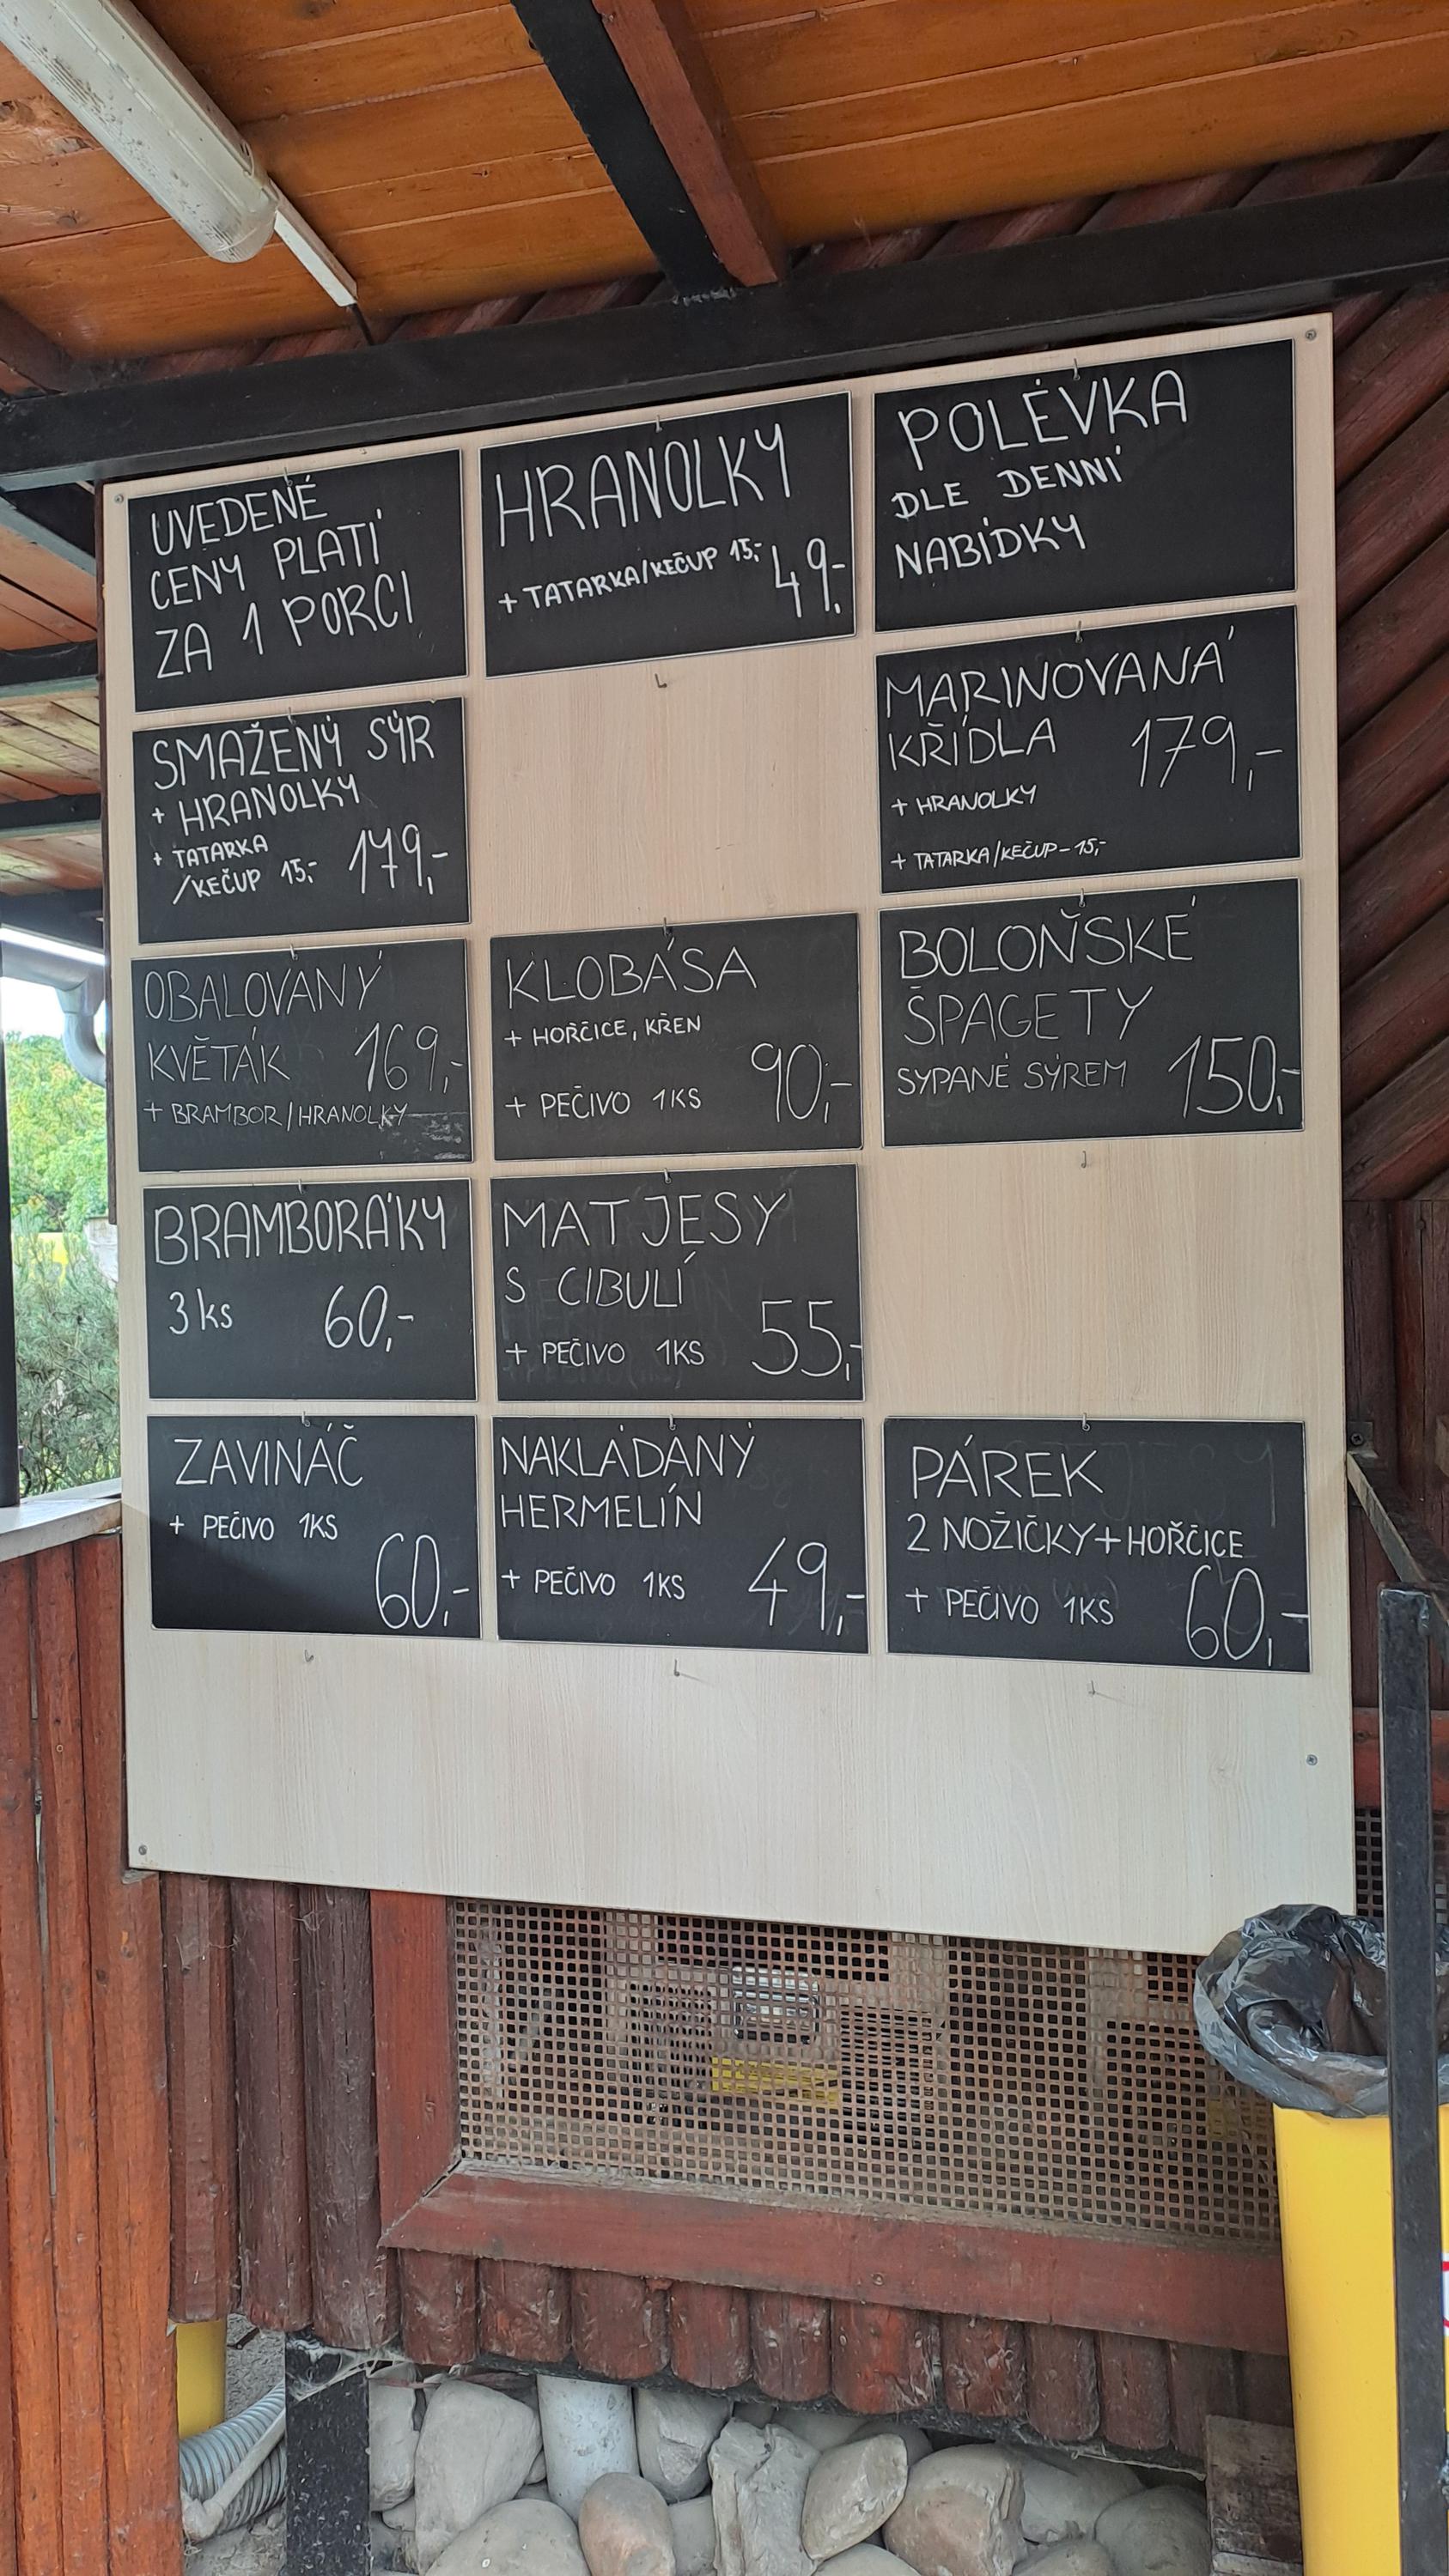 UVEDENÉ
CENY PLATÍ
ZA 1 PORCI
HRANOLKY
+ TATARKA/KEČUP 15,-
49,-
POLÉVKA
DLE DENNÍ
NABÍDKY
SMAŽENÝ SÝR
+ HRANOLKY
+ TATARKA
/KEČUP 15,-
179,-
MARINOVANÁ
KŘÍDLA 179,-
+ HRANOLKY
+ TATARKA/KEČUP - 15,-
OBALOVANÝ
KVĚTÁK 169,-
+ BRAMBOR/HRANOLKY
KLOBÁSA
+ HOŘČICE, KŘEN
+ PEČIVO 1KS 90,-
BOLOŇSKÉ
ŠPAGETY
SYPANÉ SÝREM 150,-
BRAMBORÁKY
3 ks 60,-
MATJESY
S CIBULÍ
+ PEČIVO 1KS 55,-
ZAVINÁČ
+ PEČIVO 1KS
60,-
NAKLÁDANÝ
HERMELÍN
+ PEČIVO 1KS 49,-
PÁREK
2 NOŽIČKY + HOŘČICE
+ PEČIVO 1KS 60,-